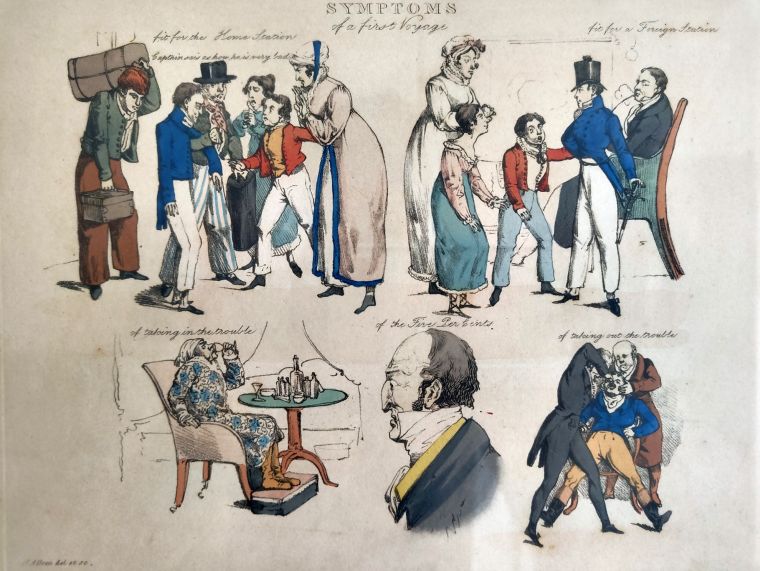 SYMPTOMS
of a first Voyage
fit for the Home Station
fit for a Foreign Station
Captain says as how he is very bad
of taking in the trouble
of the Five Per Cents.
of taking out the trouble